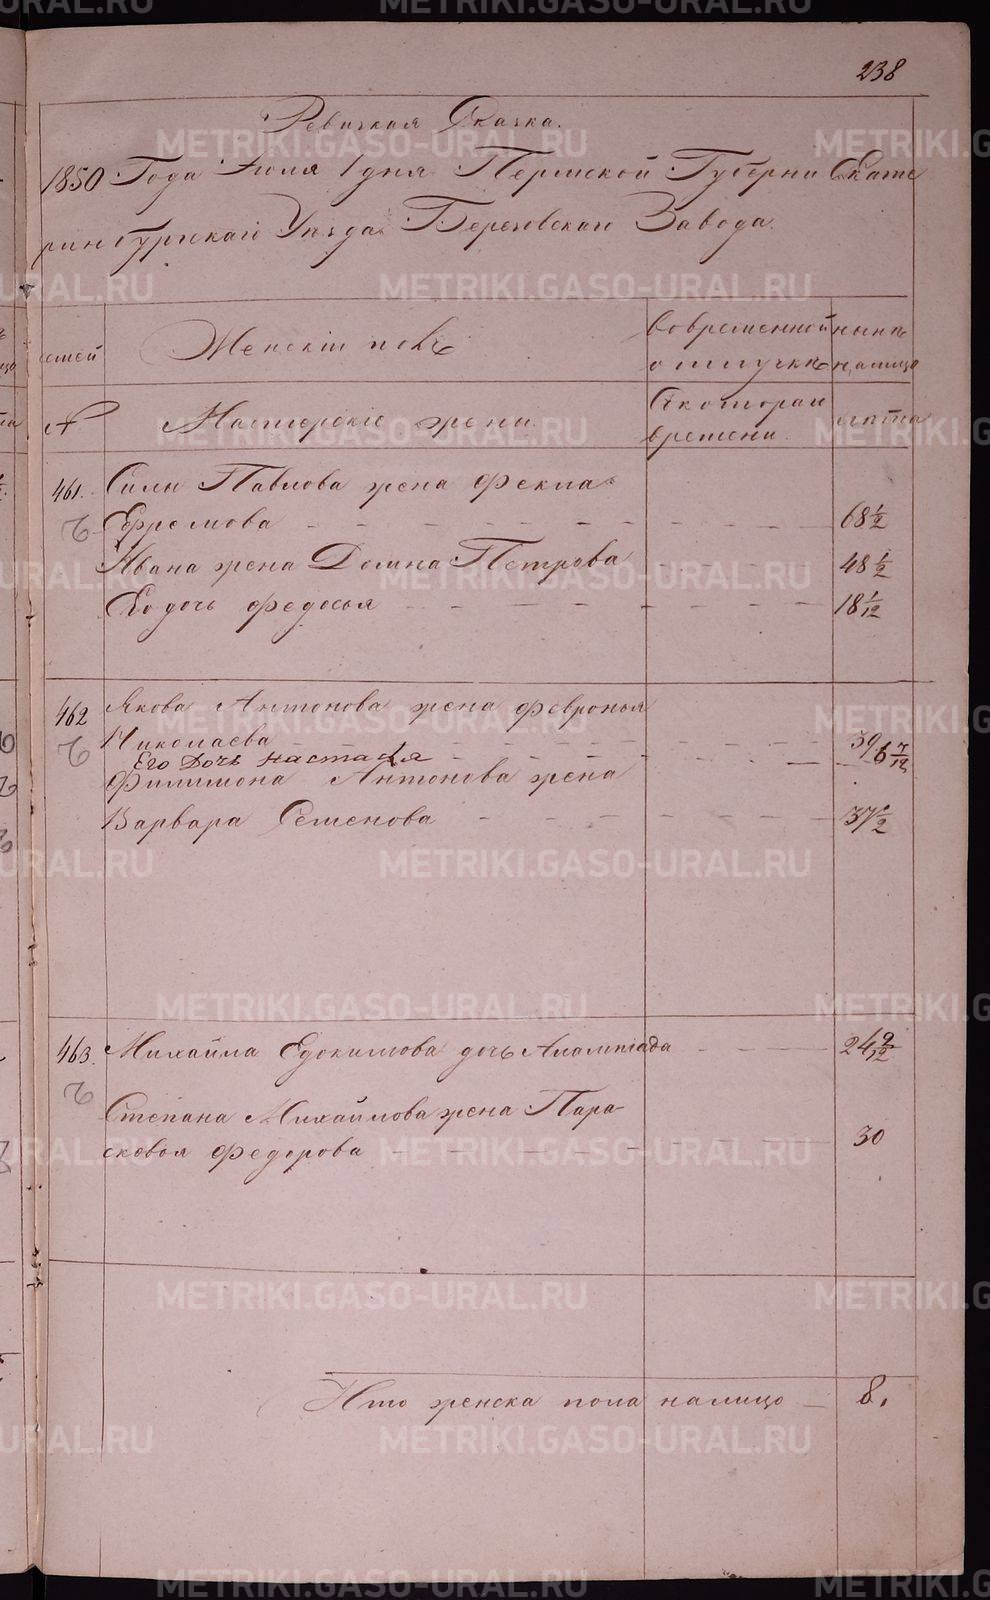 238
Ревизкая Сказка.
1850 Года Июля 1 дня Пермской Губерни Екате
ринбургскай Уезда Березовскаи Завода.
Женскiи полъ
Вовременной
отлучкѣ
ныне
налицо
семей
№
Мастерскiе жены
Скотораи
времени
лѣта
461.
Силы Павлова жена Фекла
Ефремова
68 1/2
Ивана жена Домна Петрова
48 1/2
Ево дочь Федосья
18 1/12
462
Якова Антонова жена Февронья
Николаева
39
Его Дочь Настасья
6 7/12
Филимона Антонова жена
Варвара Семенова
37 1/2
463.
Михайла Едокимова дочь Алампiада
24 9/12
Степана Михайлова жена Пара-
сковья Федорова
30
Итo женска пола налицо
8.
METRIKI.GASO-URAL.RU